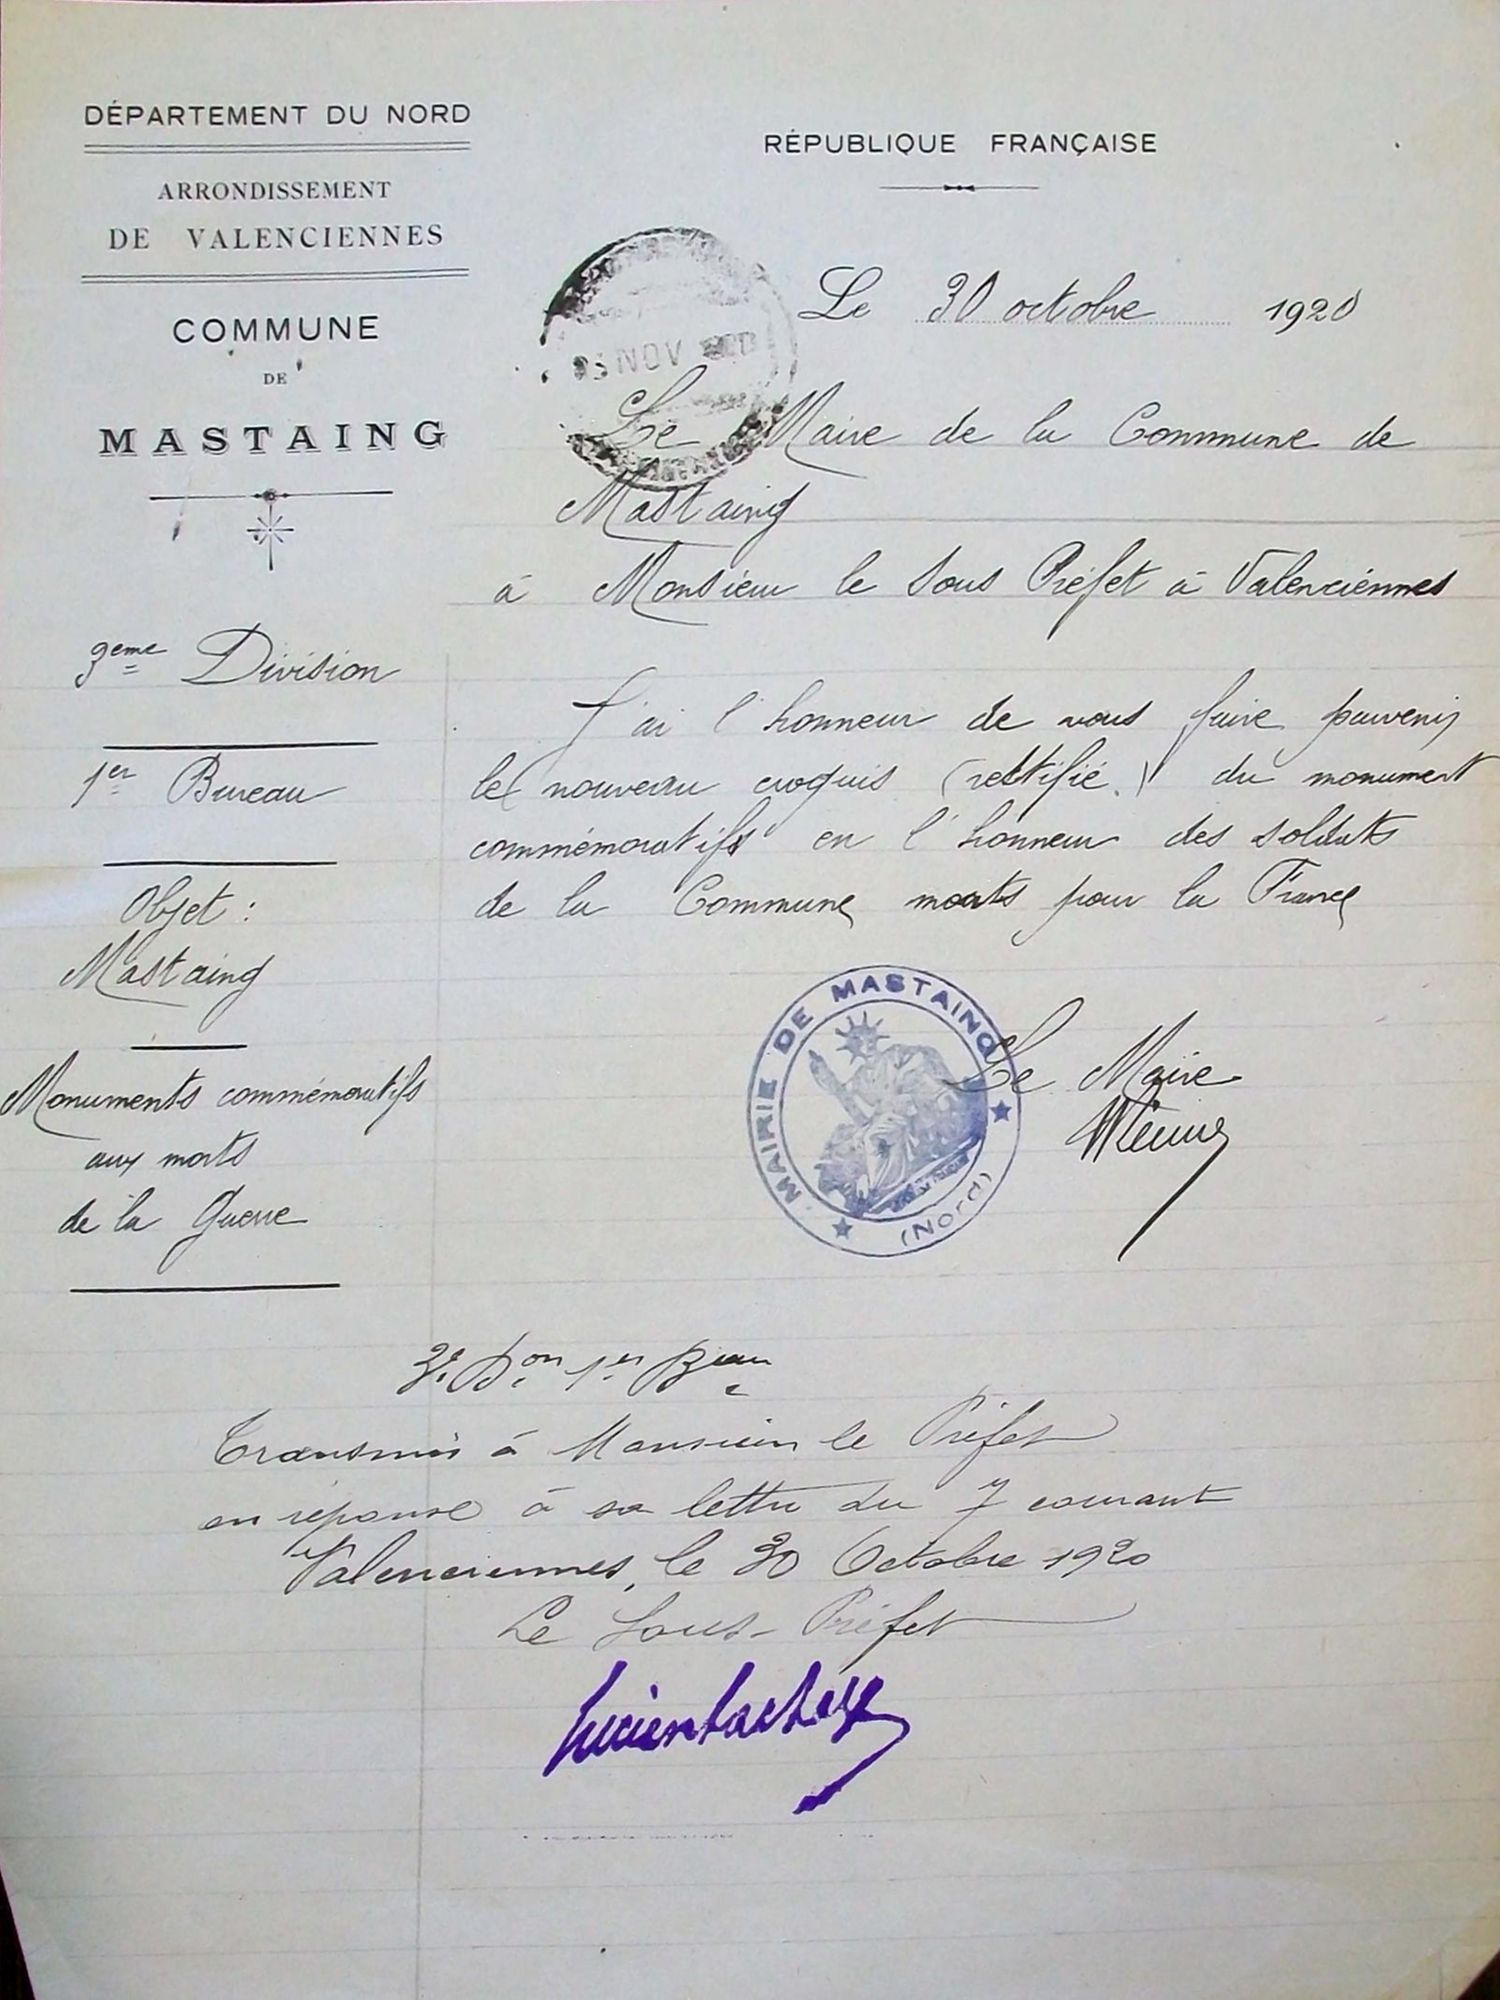 DÉPARTEMENT DU NORD
ARRONDISSEMENT
DE VALENCIENNES
COMMUNE
DE
MASTAING
RÉPUBLIQUE FRANÇAISE
Le 30 octobre 1920
NOV
Le Maire de la Commune de
Mastaing
à Monsieur le Sous Préfet à Valenciennes
3eme Division
1er Bureau
Objet :
Mastaing
Monuments commémoratifs
aux morts
de la Guerre
J'ai l'honneur de vous faire parvenir
le nouveau croquis (rectifié) du monument
commémoratifs en l'honneur des soldats
de la Commune morts pour la France
MAIRIE DE MASTAING
(Nord)
Le Maire
3e Don 1er Beau
Transmis à Monsieur le Préfet
en réponse à sa lettre du 7 courant
Valenciennes, le 30 Octobre 1920
Le Sous-Préfet